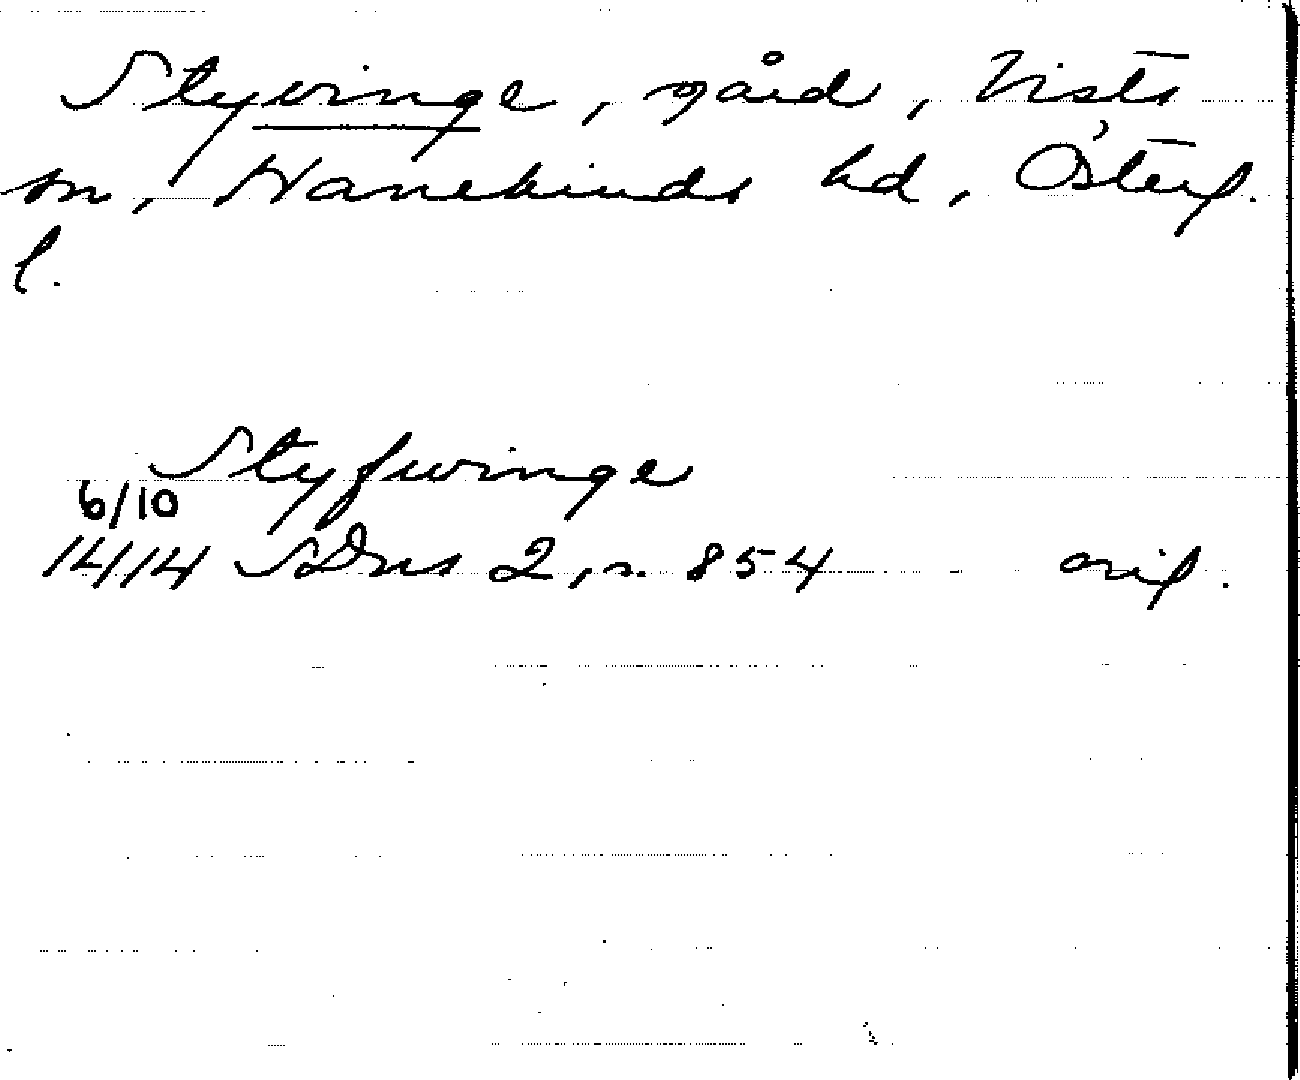 Styvinge, gård, Vists
sn, Hanekinds hd, Österg.
l.
Styfwinge
6/10
1414 SDns 2, s. 854 orig.